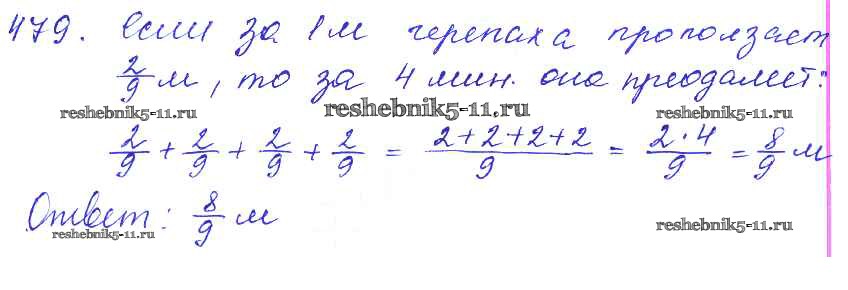 479. Если за 1 м черепаха проползает
2/9 м, то за 4 мин. она преодалеет:
reshebnik5-11.ru reshebnik5-11.ru reshebnik5-11.ru
2/9 + 2/9 + 2/9 + 2/9 = 2+2+2+2/9 = 2·4/9 = 8/9 м
Ответ: 8/9 м
reshebnik5-11.ru reshebnik5-11.ru